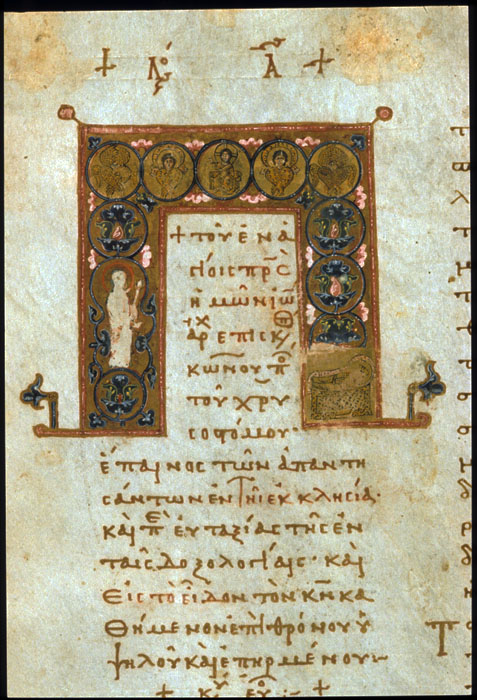 + Λό Α̅ +
+ τοῦ ἐν ἁ
γίοις πρ̅ς
ἡμῶν ἰω
ἀρχεπισκ
κων̅ου πο
τοῦ χρυ
σοστόμου·
ἔπαινος τῶν ἀπαντη
σάντων ἐν τῆι ἐκκλησία·
καὶ πε εὐταξίας τῆς ἐν
ταῖς δοξολογίαις· καὶ
εἰς τὸ εἶδον τὸν κ̅ν κα
θήμενον ἐπὶ θρόνου ὑ
ψηλοῦ καὶ ἐπηρμένου:~
+ κύ εὐ :~ +